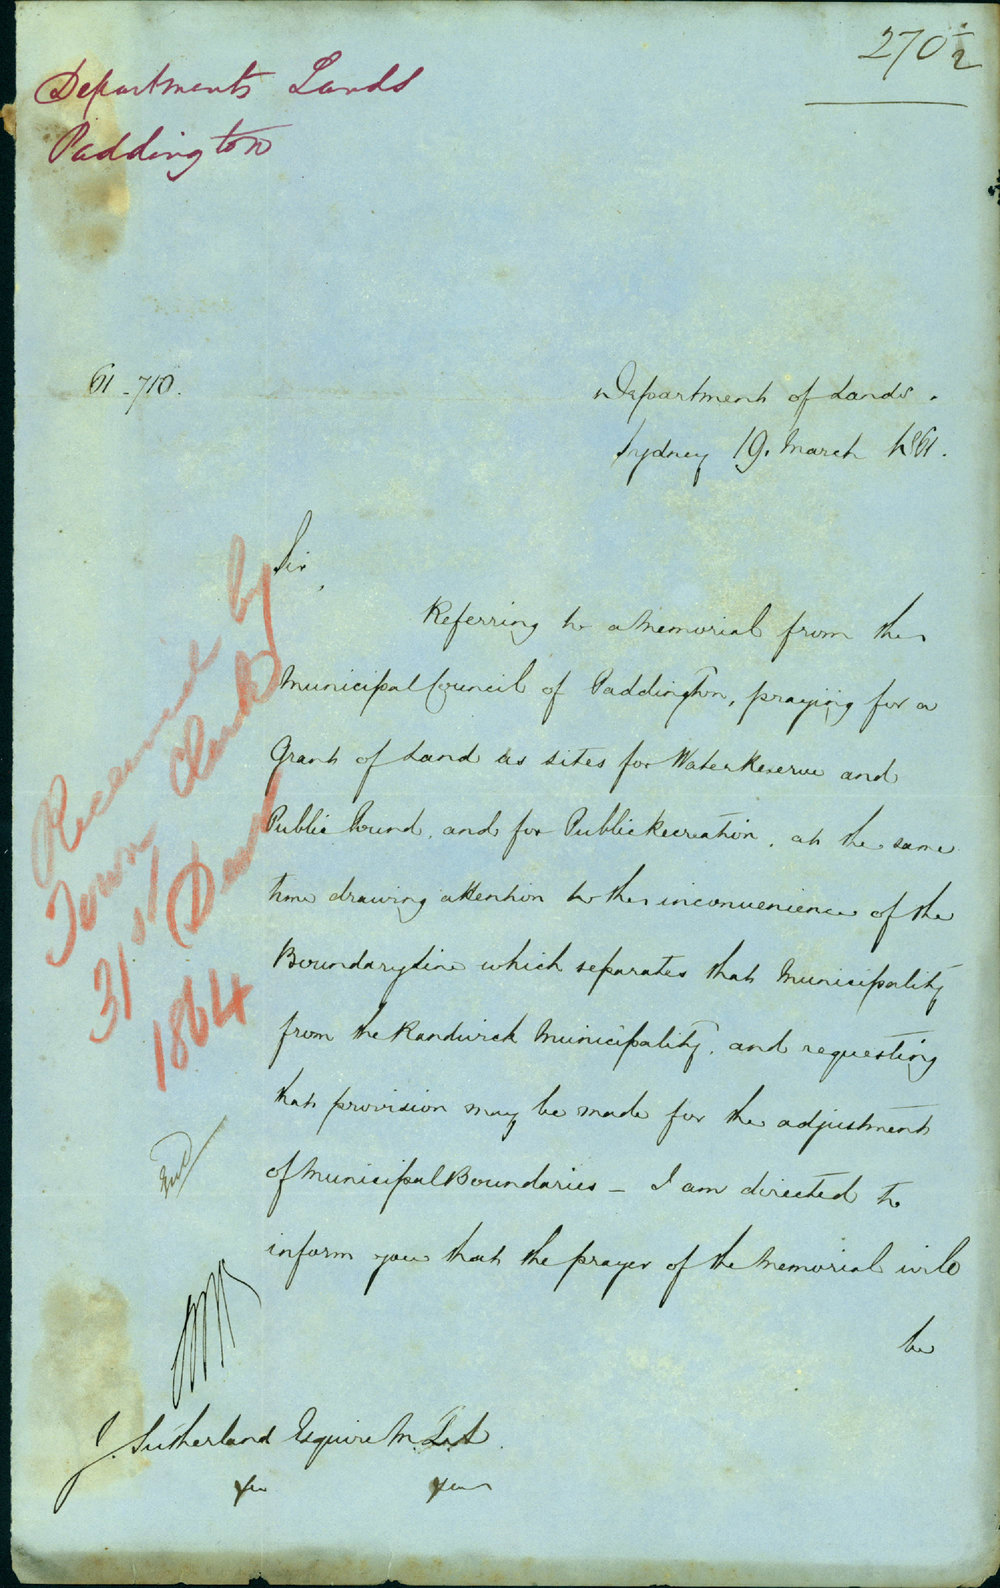 270½
Departments Lands
Paddington
61-710.
Department of Lands.
Sydney 19. March 1861.
Sir,
Referring to a Memorial from the
Municipal Council of Paddington, praying for a
Grant of Land as sites for Water Reserve and
Public Pound, and for Public Recreation, at the same
time drawing attention to the inconvenience of the
Boundary line which separates that Municipality
from the Randwick Municipality, and requesting
that provision may be made for the adjustment
of Municipal Boundaries – I am directed to
inform you that the prayer of the Memorial will
be
Received by
Town Clerk
31st
1864
J. Sutherland Esquire M.L.A.